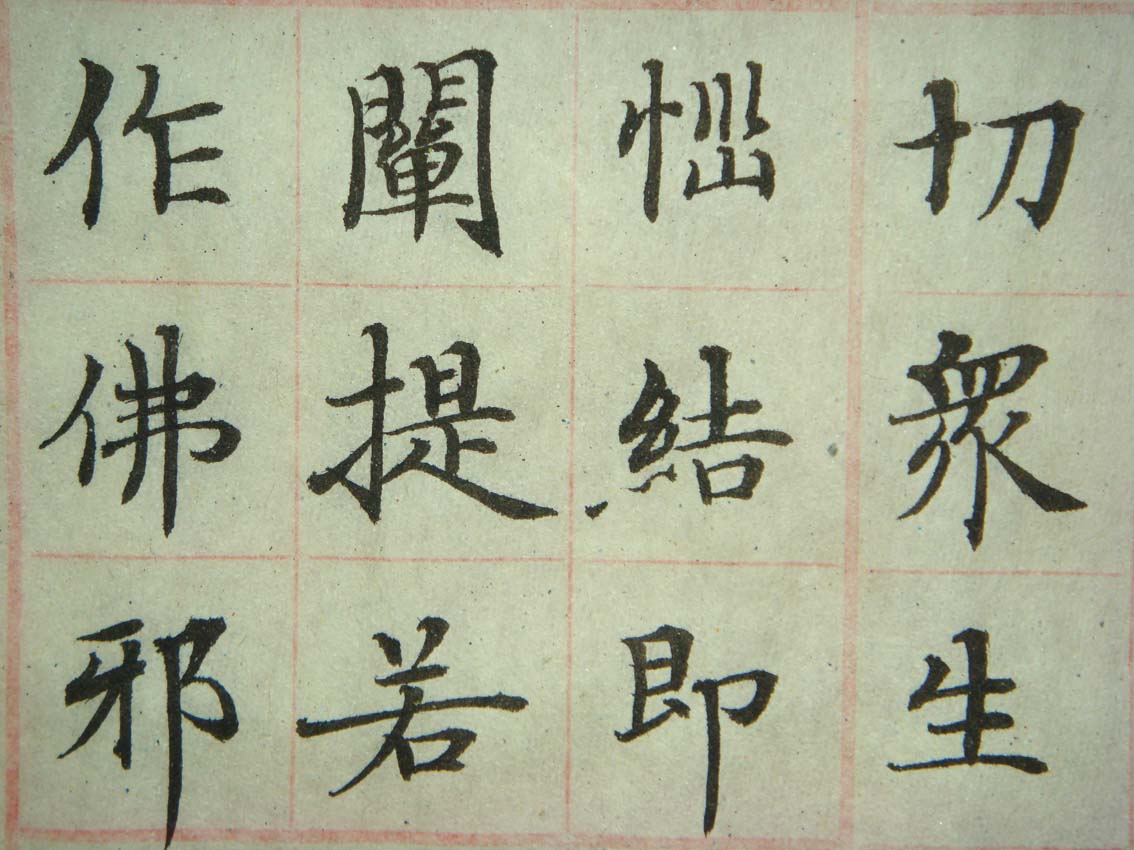 切眾生
惱結即
闡提若
作佛邪